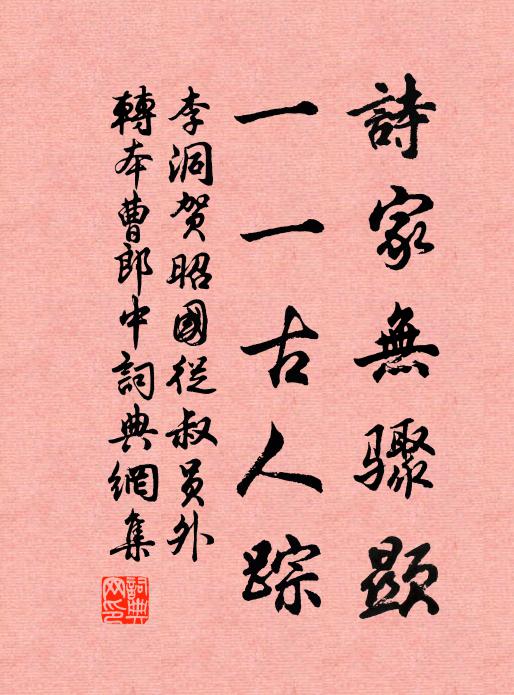 詩家無驟顯
一一古人踪
李洞賀昭國從叔員外
轉本曹郎中詞典網集
詞典网印